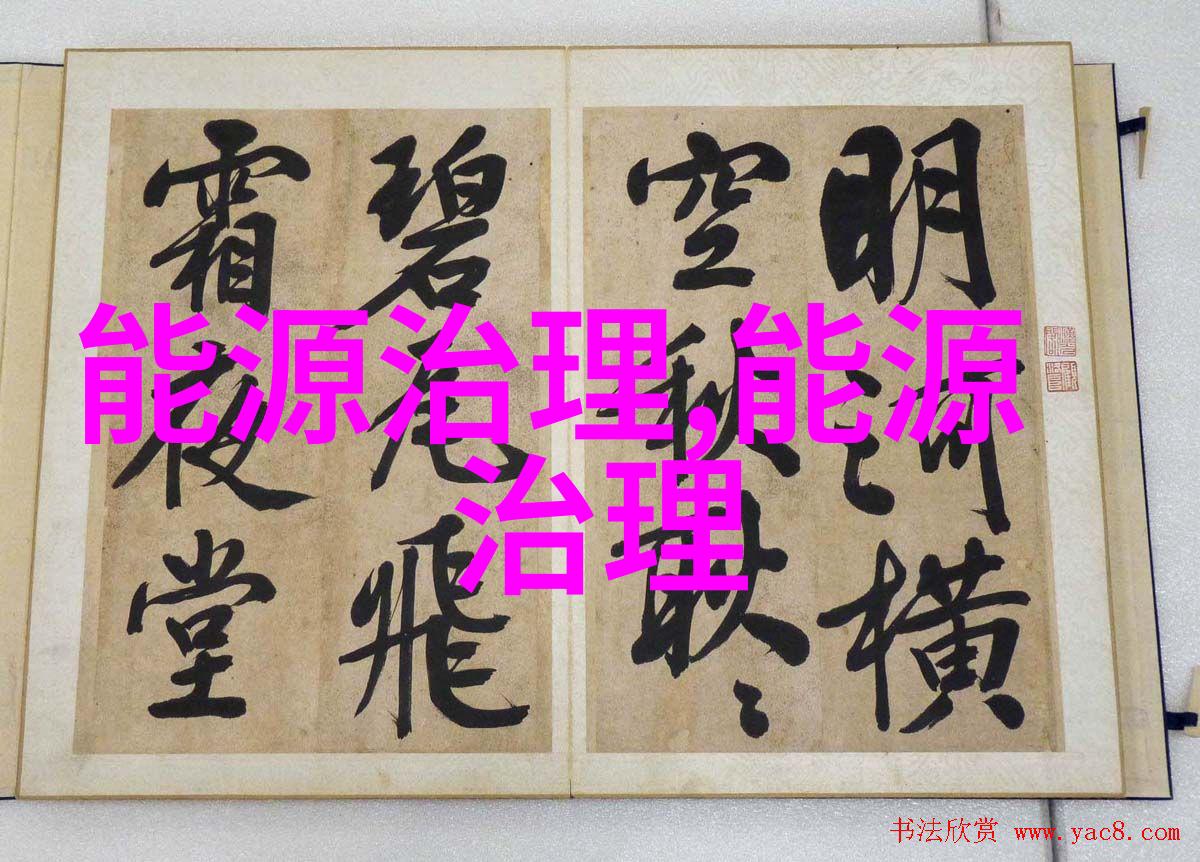 明河橫
空秋耿〻
碧瓦飛
霜夜堂
能源治理,能源
治理
书法欣赏 www.yac8.com